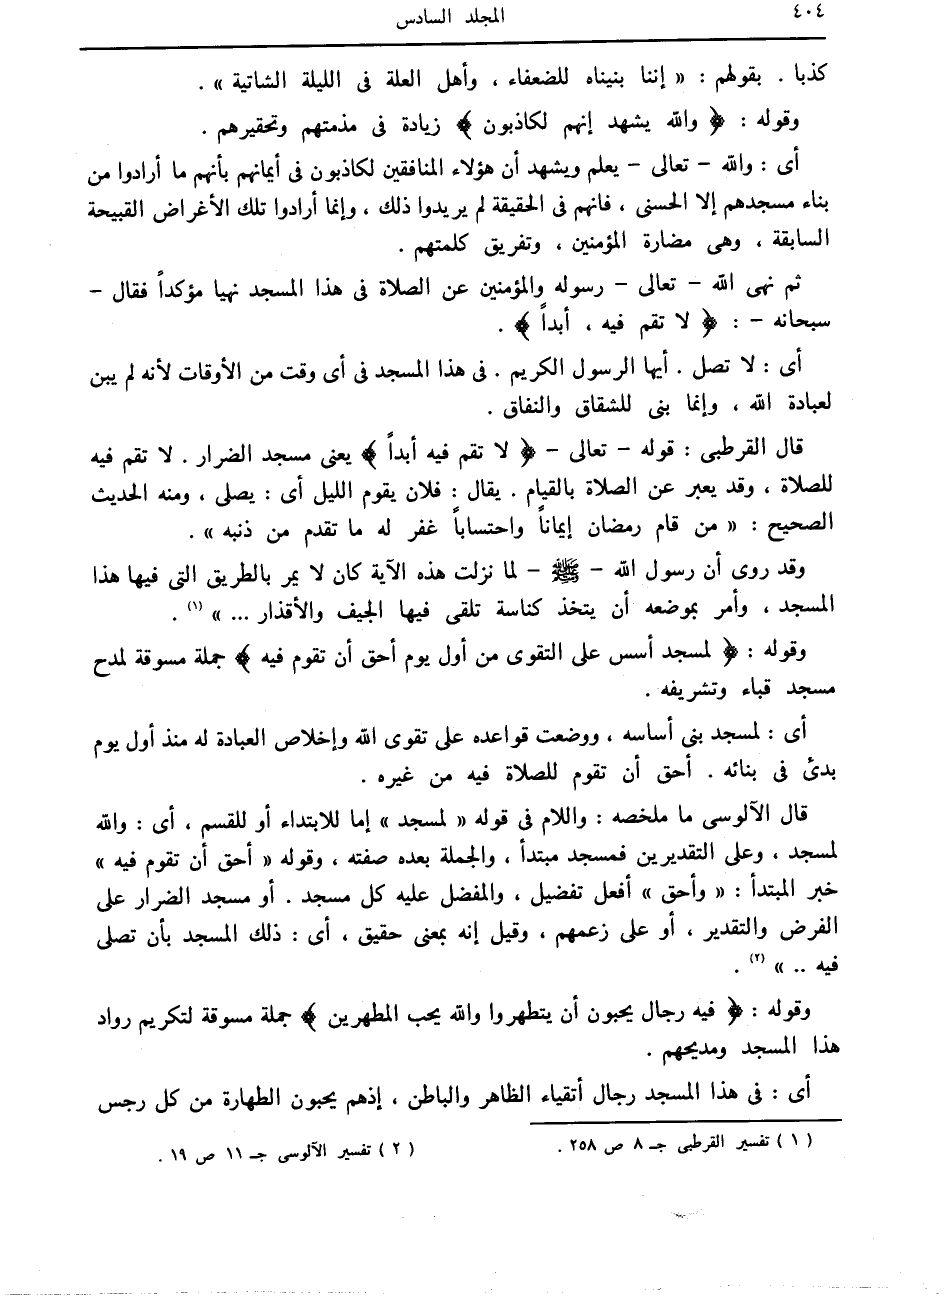 ٤٠٤
المجلد السادس
كذبا . بقولهم : « إننا بنيناه للضعفاء ، وأهل العلة فى الليلة الشاتية » .
وقوله : ﴿ والله يشهد إنهم لكاذبون ﴾ زيادة فى مذمتهم وتحقيرهم .
أى : والله - تعالى - يعلم ويشهد أن هؤلاء المنافقين لكاذبون فى أيمانهم بأنهم ما أرادوا من
بناء مسجدهم إلا الحسنى ، فانهم فى الحقيقة لم يريدوا ذلك ، وإنما أرادوا تلك الأغراض القبيحة
السابقة ، وهى مضارة المؤمنين ، وتفريق كلمتهم .
ثم نهى الله - تعالى - رسوله والمؤمنين عن الصلاة فى هذا المسجد نهيا مؤكداً فقال -
سبحانه - : ﴿ لا تقم فيه ، أبداً ﴾ .
أى : لا تصل . أيها الرسول الكريم . فى هذا المسجد فى أى وقت من الأوقات لأنه لم يبن
لعبادة الله ، وإنما بنى للشقاق والنفاق .
قال القرطبى : قوله - تعالى - ﴿ لا تقم فيه أبداً ﴾ يعنى مسجد الضرار . لا تقم فيه
للصلاة ، وقد يعبر عن الصلاة بالقيام . يقال : فلان يقوم الليل أى : يصلى ، ومنه الحديث
الصحيح : « من قام رمضان إيماناً واحتساباً غفر له ما تقدم من ذنبه » .
وقد روى أن رسول الله - ﷺ - لما نزلت هذه الآية كان لا يمر بالطريق التى فيها هذا
المسجد ، وأمر بموضعه أن يتخذ كناسة تلقى فيها الجيف والأقذار ... » (١) .
وقوله : ﴿ لمسجد أسس على التقوى من أول يوم أحق أن تقوم فيه ﴾ جملة مسوقة لمدح
مسجد قباء وتشريفه .
أى : لمسجد بنى أساسه ، ووضعت قواعده على تقوى الله وإخلاص العبادة له منذ أول يوم
بدئ فى بنائه . أحق أن تقوم للصلاة فيه من غيره .
قال الآلوسى ما ملخصه : واللام فى قوله « لمسجد » إما للابتداء أو للقسم ، أى : والله
لمسجد ، وعلى التقديرين فمسجد مبتدأ ، والجملة بعده صفته ، وقوله « أحق أن تقوم فيه »
خبر المبتدأ : « وأحق » أفعل تفضيل ، والمفضل عليه كل مسجد . أو مسجد الضرار على
الفرض والتقدير ، أو على زعمهم ، وقيل إنه بمعنى حقيق ، أى : ذلك المسجد بأن تصلى
فيه .. » (٢) .
وقوله : ﴿ فيه رجال يحبون أن يتطهروا والله يحب المطهرين ﴾ جملة مسوقة لتكريم رواد
هذا المسجد ومديحهم .
أى : فى هذا المسجد رجال أتقياء الظاهر والباطن ، إذهم يحبون الطهارة من كل رجس
( ١ ) تفسير القرطبى جـ ٨ ص ٢٥٨ .
( ٢ ) تفسير الآلوسى جـ ١١ ص ١٩ .